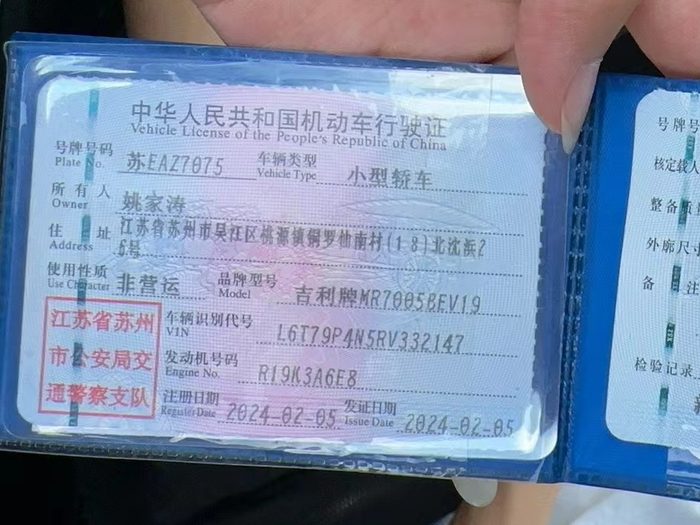 中华人民共和国机动车行驶证
Vehicle License of the People's Republic of China
号牌号码 苏EAZ7075 车辆类型 小型轿车
Plate No. Vehicle Type
所有人 姚家涛
Owner
住址 江苏省苏州市吴江区桃源镇铜罗仙南村(18)北沈浜2
Address 6号
使用性质 非营运 品牌型号 吉利牌MR7005BEV19
Use Character Model
江苏省苏州
市公安局交
通警察支队
车辆识别代号 L6T79P4N5RV332147
VIN
发动机号码 R19K3A6E8
Engine No.
注册日期 2024-02-05 发证日期 2024-02-05
Register Date Issue Date
号牌号
核定载人
整备质
外廓尺
备 注
检验记录